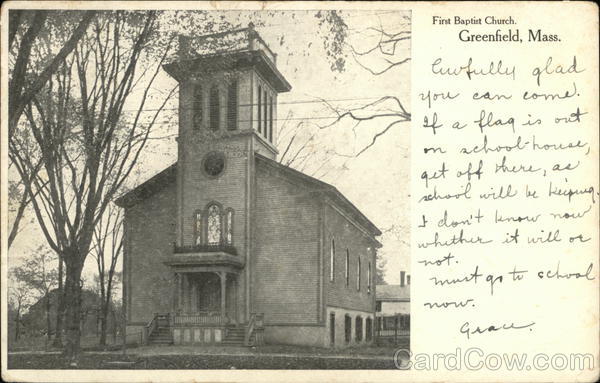 First Baptist Church.
Greenfield, Mass.
Awfully glad
you can come.
If a flag is out
on school-house,
get off there, as
school will be keeping.
I don't know now
whether it will or
not.
Must go to school
now.
Grace.
CardCow.com